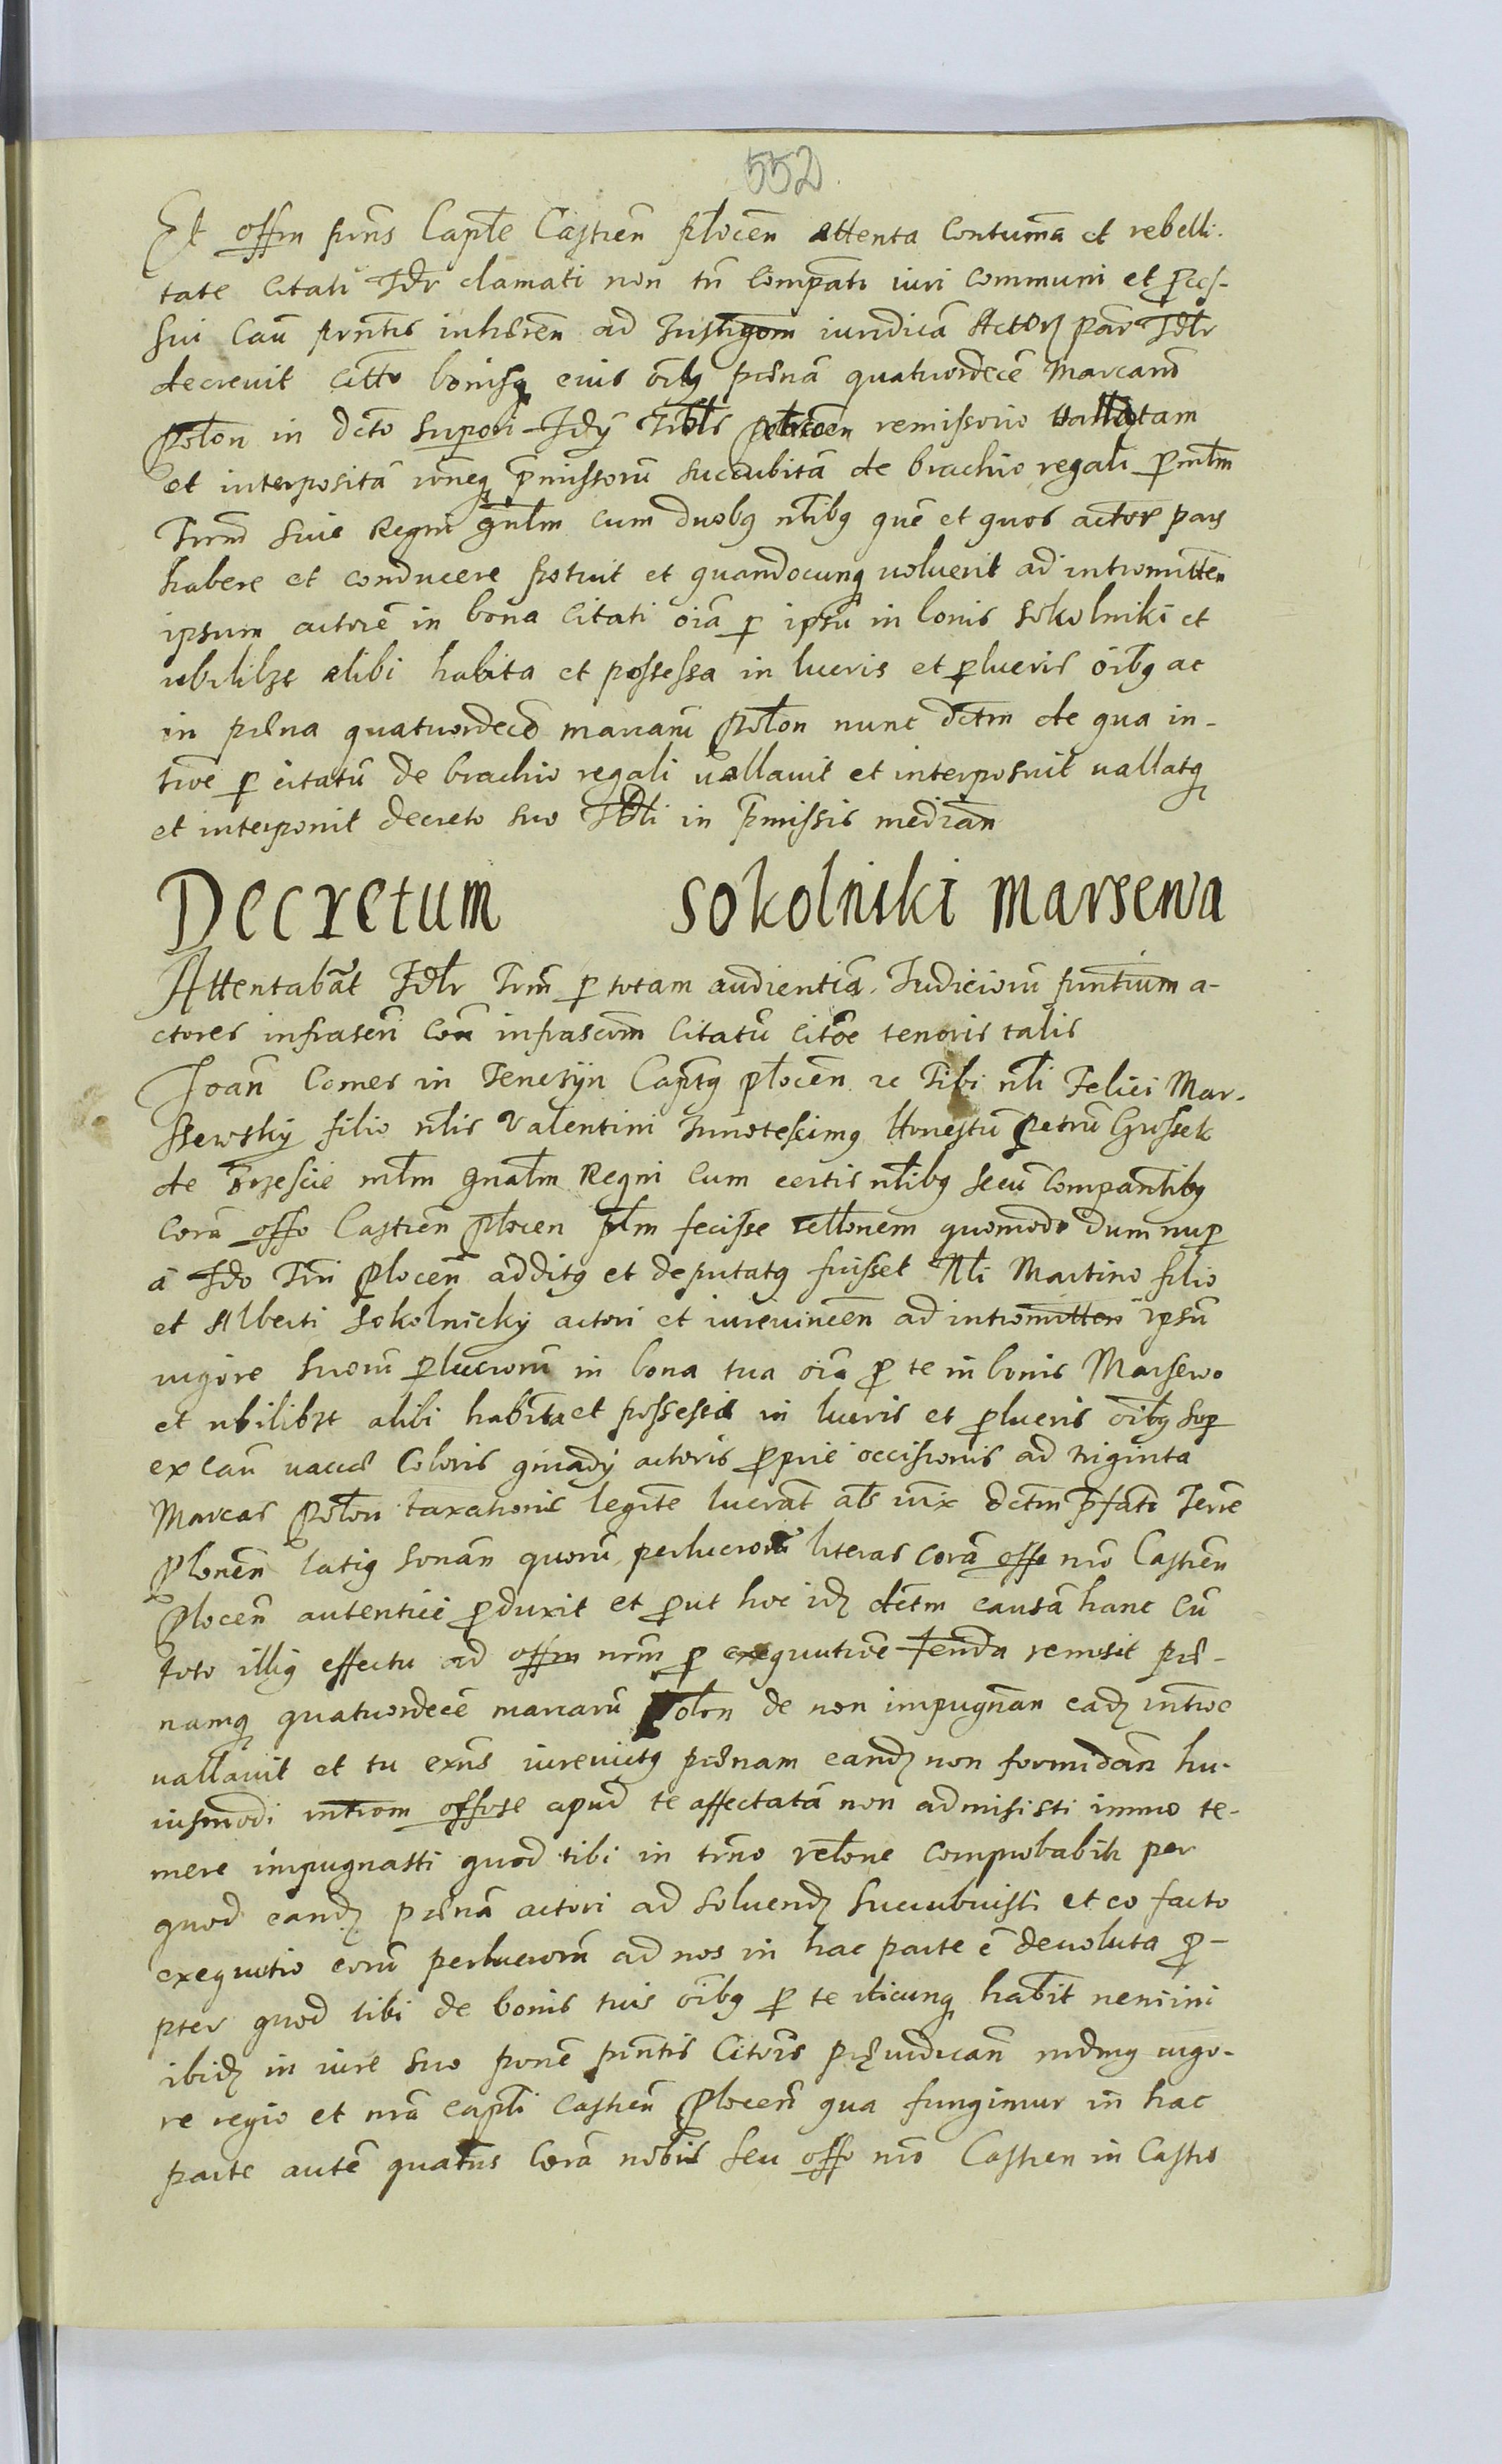 552
Et offm pñs Capte Castreñ plocen attenta Contuma et rebelli-
tate Citati Jdr clamati non tñ Compati iuri Communi et proces-
sui Cau pñtis inhereñ ad Instigom iuridicã Actor par Jdr
decreuit Citto bonisq eius oibq pœnã quatuordecẽ Marcarũ
Polon in dcto supori Jdy Trlis plocen remissorio Vallatam
et interpositã roneq pmissorũ succubitã de brachio regali p mtm
Trm siue Regni gnlm cum duobq nlibq quẽ et quos actor pars
habere et conducere potuit et quandocunq uoluerit ad intromitten
ipsum actorẽ in bona Citati oia p ipsũ in bonis Sokolniki et
ubilibzt alibi habita et possessa in lucris et plucris oibq ac
in pœna quatuordecẽ marcarũ Polon nunc dctm de qua in-
troe p citatũ de brachio regali uallauit et interposuit uallatq
et interponit decreto suo Jdli in pmissis median
Decretum Sokolniki Marsewa
Attentabãt Jdr Trm p totam audientiã Judiciorũ pñtium a-
ctores infrascri Cõn infrascrm Citatũ Citoe tenoris talis
Joañ Comes in Tenczyn Captq plocen ac Tibi nli Felici Mar-
ssewsky filio nlis Valentini Innotescimq Honestũ Petrũ Grossek
de mtm gnalm Regni Cum certis nlibq secũ Comparentibq
Corã offo Castreñ Plocen plm fecisse rellonem quomodo dum nup
a Jdo Tri Plocen additq et deputatq fuisset Nli Martino filio
et Alberti Sokolnicky actori et iureuincen ad intromitten ipsũ
uigore suorũ plucrorũ in bona tua oia p te in bonis Marsewo
et ubilibzt alibi habita et possessa in lucris et plucris oibq sup
ex Cau uaccæ Coloris gniady actoris pprie occisionis ad triginta
Marcas Polon taxationis legitme lucrat als iux dctm pfati Terre
Plonen latiq sonañ quorũ perlucrorũ literas corã offo nro Castreñ
Plocen autentice pduxit et put hoc idz dctm causã hanc Cũ
toto illiq effectu ad offm nrm p exequutioe fenda remisit pœ-
namq quatuordecẽ marcarũ Polon de non impugnan eadz introe
uallauit et tu exñs iureuictq pœnam eandz non formidañ hu-
iusmodi introm offose apud te affectatã non admisisti immo te-
mere impugnasti quod tibi in trno relone comprobabitr per
quod eandz pœnã actori ad soluendz succubuisti et eo facto
exequutio eorũ perlucrorũ ad nos in hac parte ẽ deuoluta p-
pter quod tibi de bonis tuis oibq p te ubicunq habit nemini
ibidz in iure suo ponẽ pñtis Citois preiudicañ mdmq uigo-
re regio et nra capti castreñ Plocen qua fungimur in hac
parte autẽ quatns Corã nobis seu offo nro Castren in Castro